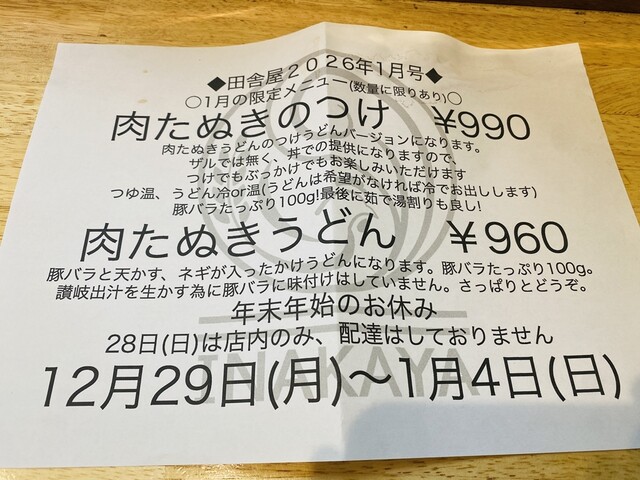 ◆田舎屋2026年1月号◆
○1月の限定メニュー(数量に限りあり)○
肉たぬきのつけ ¥990
肉たぬきうどんのつけうどんバージョンになります。
ザルでは無く、丼での提供になりますので、
つけでもぶっかけでもお楽しみいただけます
つゆ温、うどん冷or温(うどんは希望がなければ冷でお出しします)
豚バラたっぷり100g!最後に茹で湯割りも良し!
肉たぬきうどん ¥960
豚バラと天かす、ネギが入ったかけうどんになります。豚バラたっぷり100g。
讃岐出汁を生かす為に豚バラに味付けはしていません。さっぱりとどうぞ。
年末年始のお休み
28日(日)は店内のみ、配達はしておりません
INAKAYA
12月29日(月)〜1月4日(日)